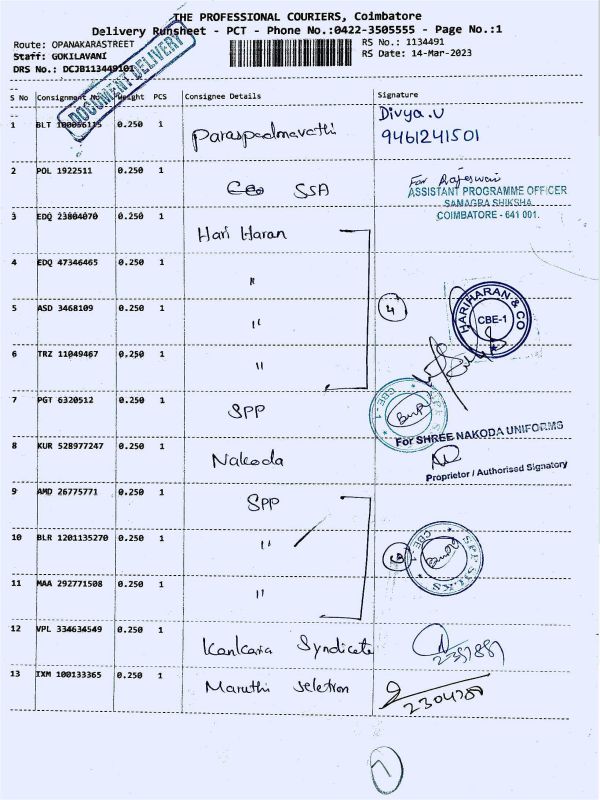 THE PROFESSIONAL COURIERS, Coimbatore
Delivery Runsheet - PCT - Phone No.:0422-3505555 - Page No.:1
Route: OPANAKARASTREET RS No.: 1134491
Staff: GOKILAVANI RS Date: 14-Mar-2023
DRS No.: DCJB113449101
DOCUMENT DELIVERY
S No Consignment No Weight PCS Consignee Details Signature
1 BLT 100056115 0.250 1 Paraspadmavathi Divya.U
9461241501
2 POL 1922511 0.250 1 SSA For Rajeswari
ASSISTANT PROGRAMME OFFICER
SAMAGRA SHIKSHA
COIMBATORE - 641 001.
3 EDQ 23804070 0.250 1 Hari Haran
4 EDQ 47346465 0.250 1 "
5 ASD 3468109 0.250 1 " 4 HARIHARAN & CO
CBE-1
6 TRZ 11049467 0.250 1 "
7 PGT 6320512 0.250 1 SPP CBE - 1
For SHREE NAKODA UNIFORMS
8 KUR 528977247 0.250 1 Nakoda
Proprietor / Authorised Signatory
9 AMD 26775771 0.250 1 SPP
10 BLR 1201135270 0.250 1 " SPP SILKS
CBE - 1
11 MAA 292771508 0.250 1 "
12 VPL 334634549 0.250 1 Kankaria Syndicate 2397887
13 IXM 100133365 0.250 1 Maruthi Seletron